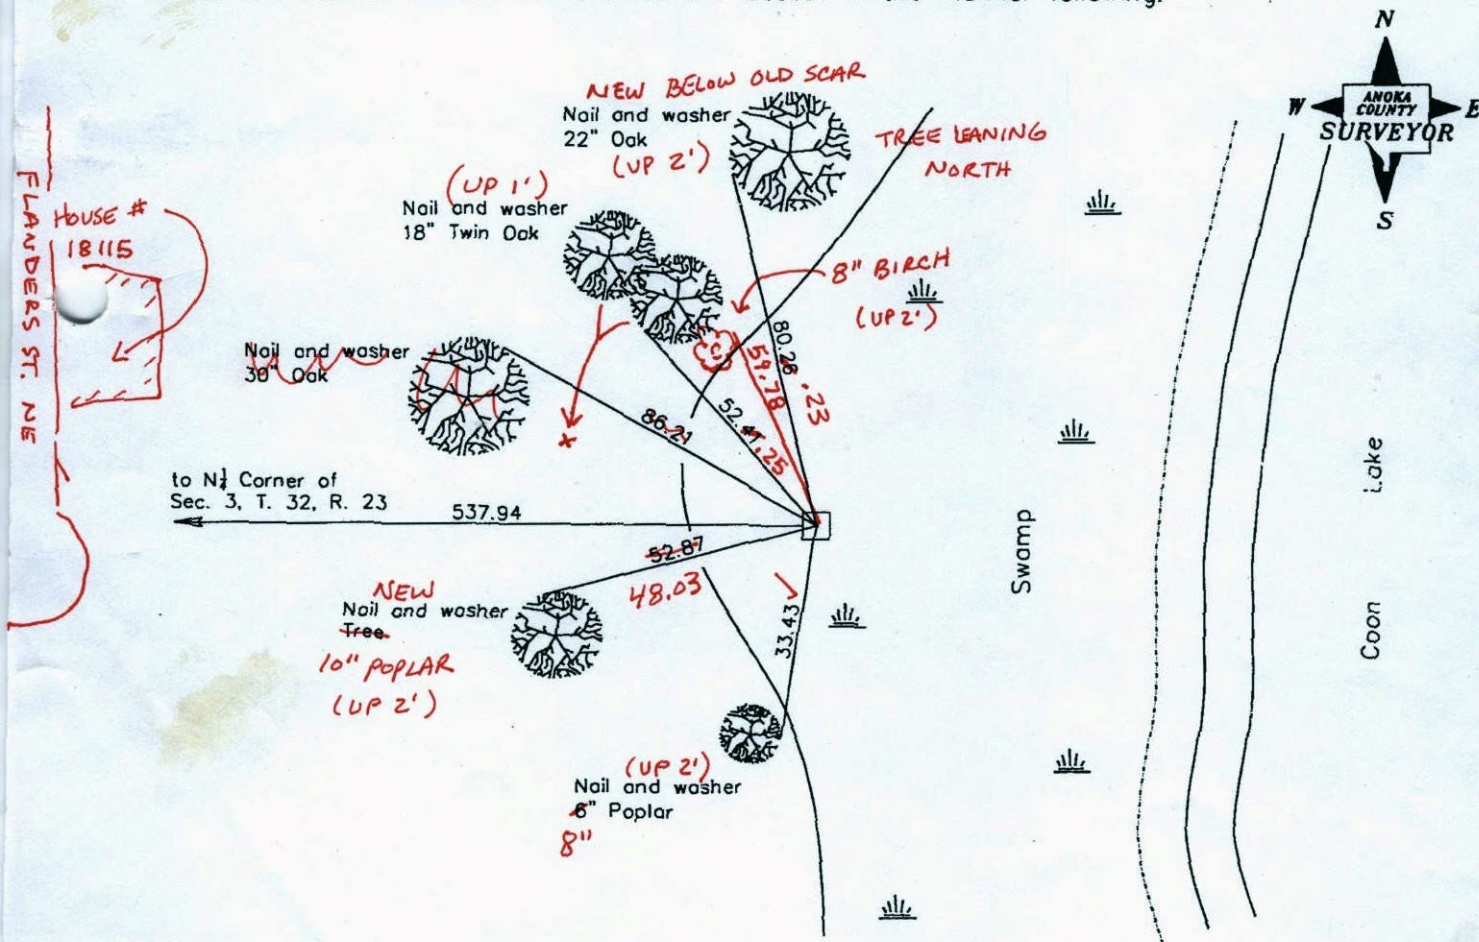 N
W
ANOKA
COUNTY
E
SURVEYOR
S
NEW BELOW OLD SCAR
Nail and washer
22" Oak
(UP 2')
TREE LEANING
NORTH
(UP 1')
Nail and washer
18" Twin Oak
FLANDERS ST. NE
HOUSE #
18115
8" BIRCH
(UP 2')
Nail and washer
30" Oak
80.26
.23
59.78
52.41
.25
86.21
to N¼ Corner of
Sec. 3, T. 32, R. 23
537.94
52.87
48.03
33.43
NEW
Nail and washer
Tree
10" POPLAR
(UP 2')
(UP 2')
Nail and washer
6" Poplar
8"
Swamp
Coon Lake